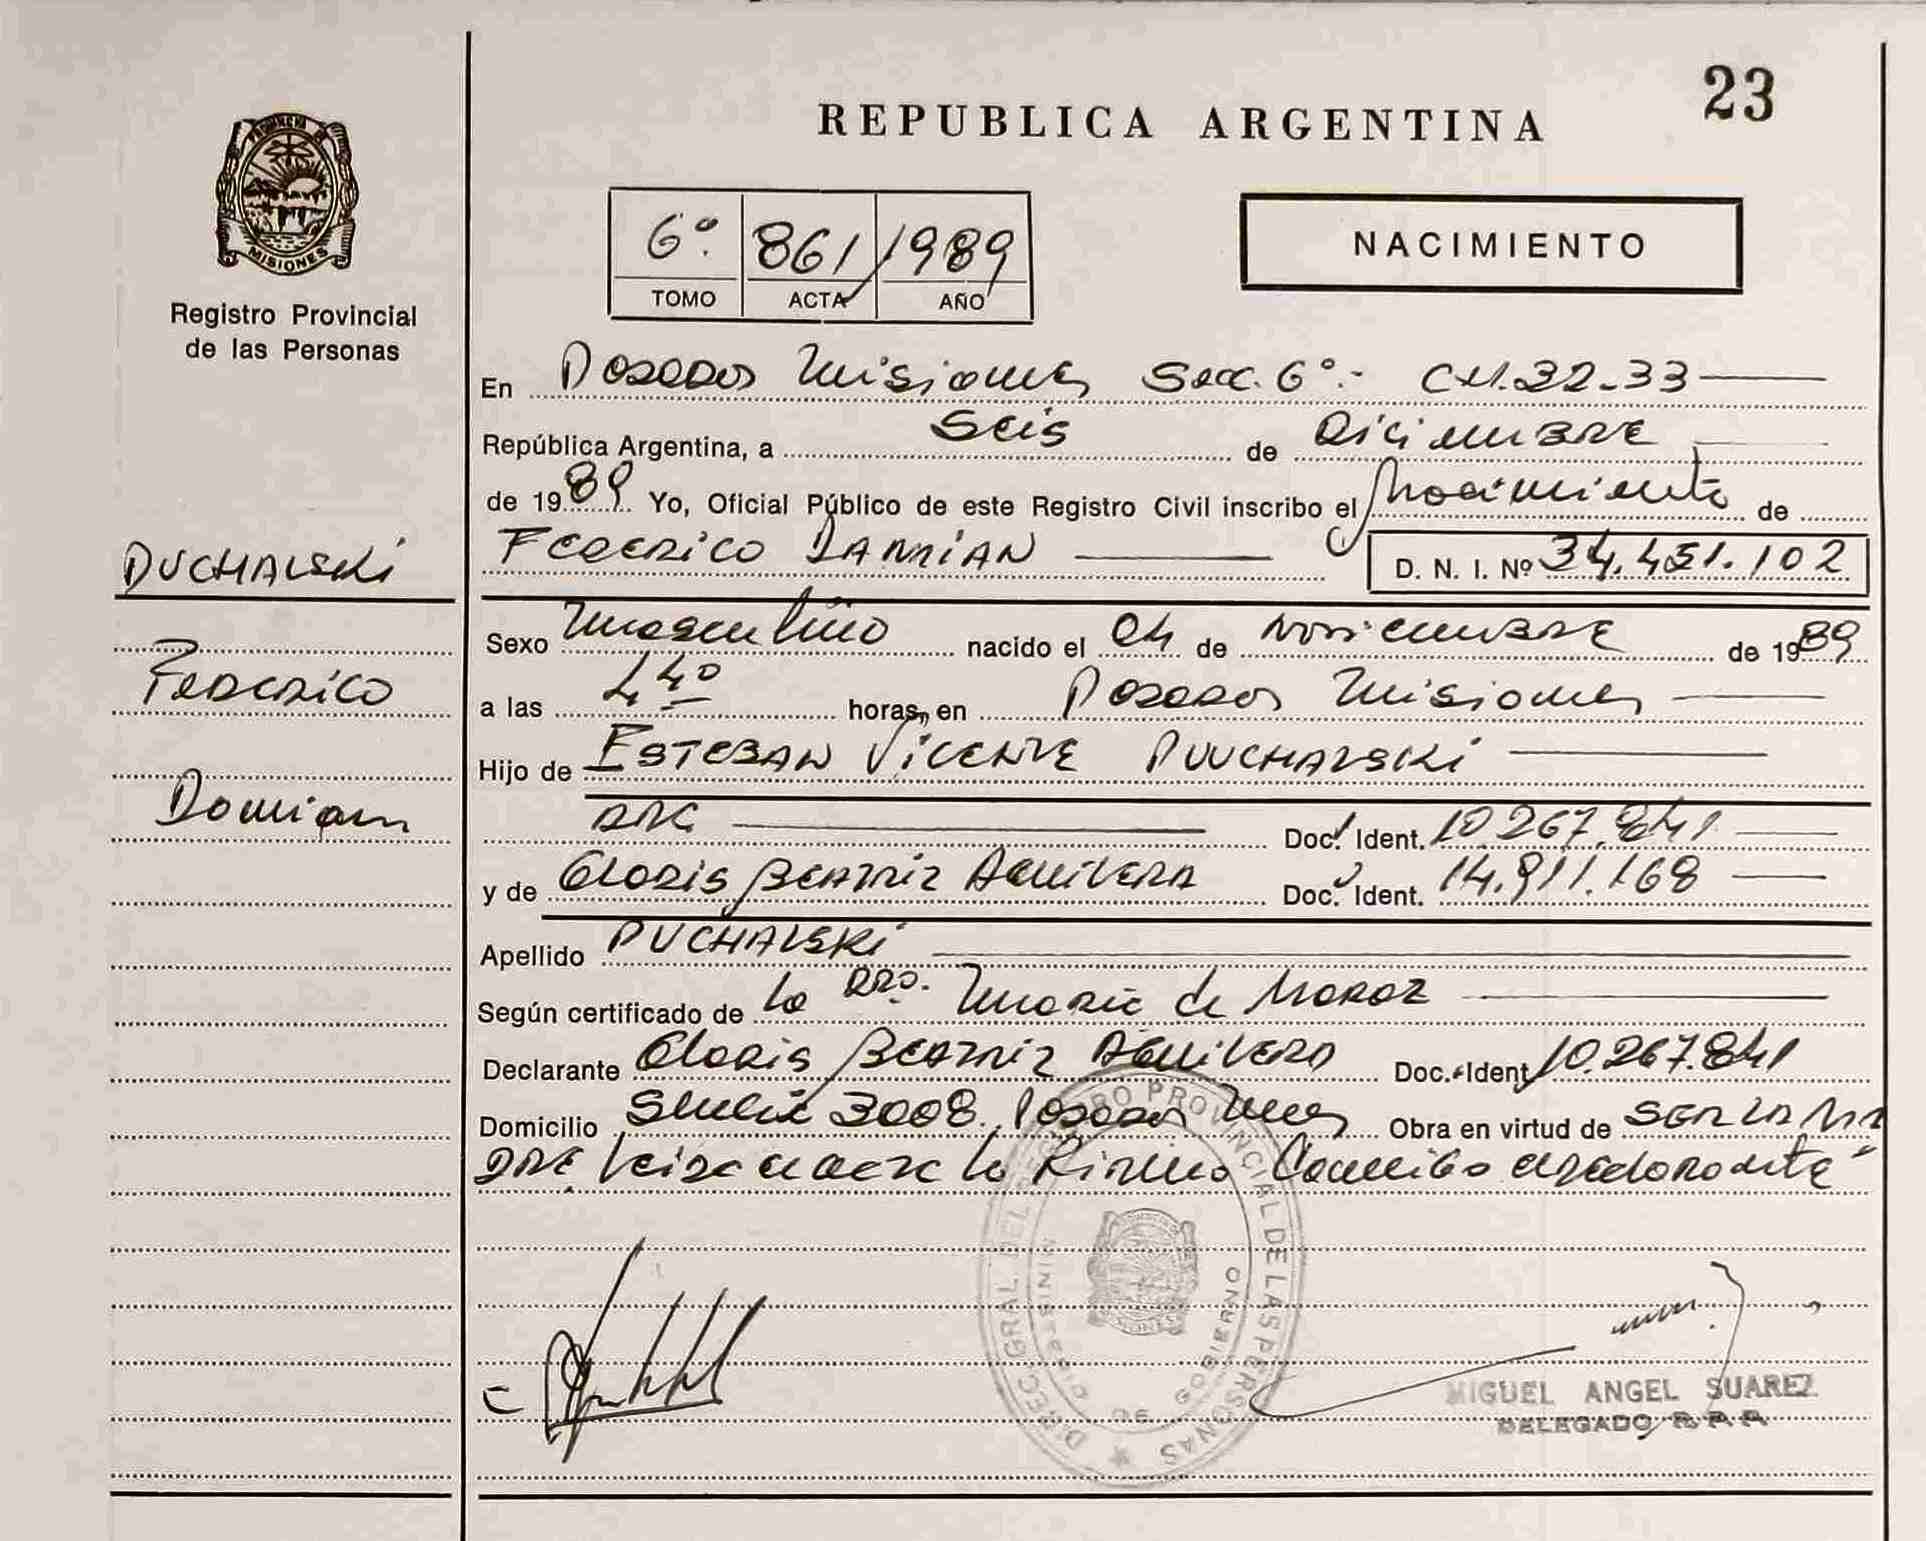 PROVINCIA DE
MISIONES
Registro Provincial
de las Personas
PUCHALSKI
Federico
Damian
23
REPUBLICA ARGENTINA
6º. 861/1989
TOMO ACTA AÑO
NACIMIENTO
En Posadas Misiones Secc. 6º.- CM.32-33
República Argentina, a Seis de Diciembre
de 1989 Yo, Oficial Público de este Registro Civil inscribo el Nacimiento de
FEDERICO DAMIAN D. N. I. Nº 34.451.102
Sexo Masculino nacido el 04 de Noviembre de 1989
a las horas, en Posadas Misiones
Hijo de ESTEBAN VICENTE PUCHALSKI
Doc. Ident. 10.267.841
y de Gloria BEATRIZ AGUILERA Doc. Ident. 14.911.168
Apellido PUCHALSKI
Según certificado de la Dra. Maria de
Declarante Gloria BEATRIZ AGUILERA Doc. Ident. 10.267.841
Domicilio 3008. Posadas Mnes Obra en virtud de SER LA MA
DRE la
DIREC. GRAL. DEL REGISTRO PROVINCIAL DE LAS PERSONAS
MINISTERIO DE GOBIERNO
MIGUEL ANGEL SUAREZ
DELEGADO R.P.P.